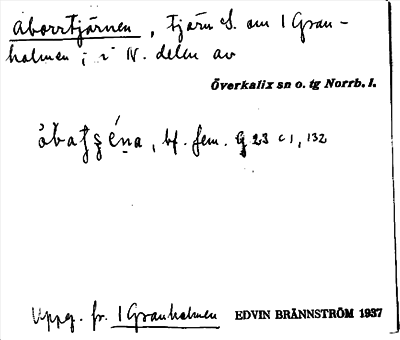 Aborrtjärnen, tjärn S. om 1 Gran-
holmen i N. delen av
Överkalix sn o. tg Norrb. l.
bf. fem. 23 c 1, 132
Uppg. fr. 1 Granholmen EDVIN BRÄNNSTRÖM 1937